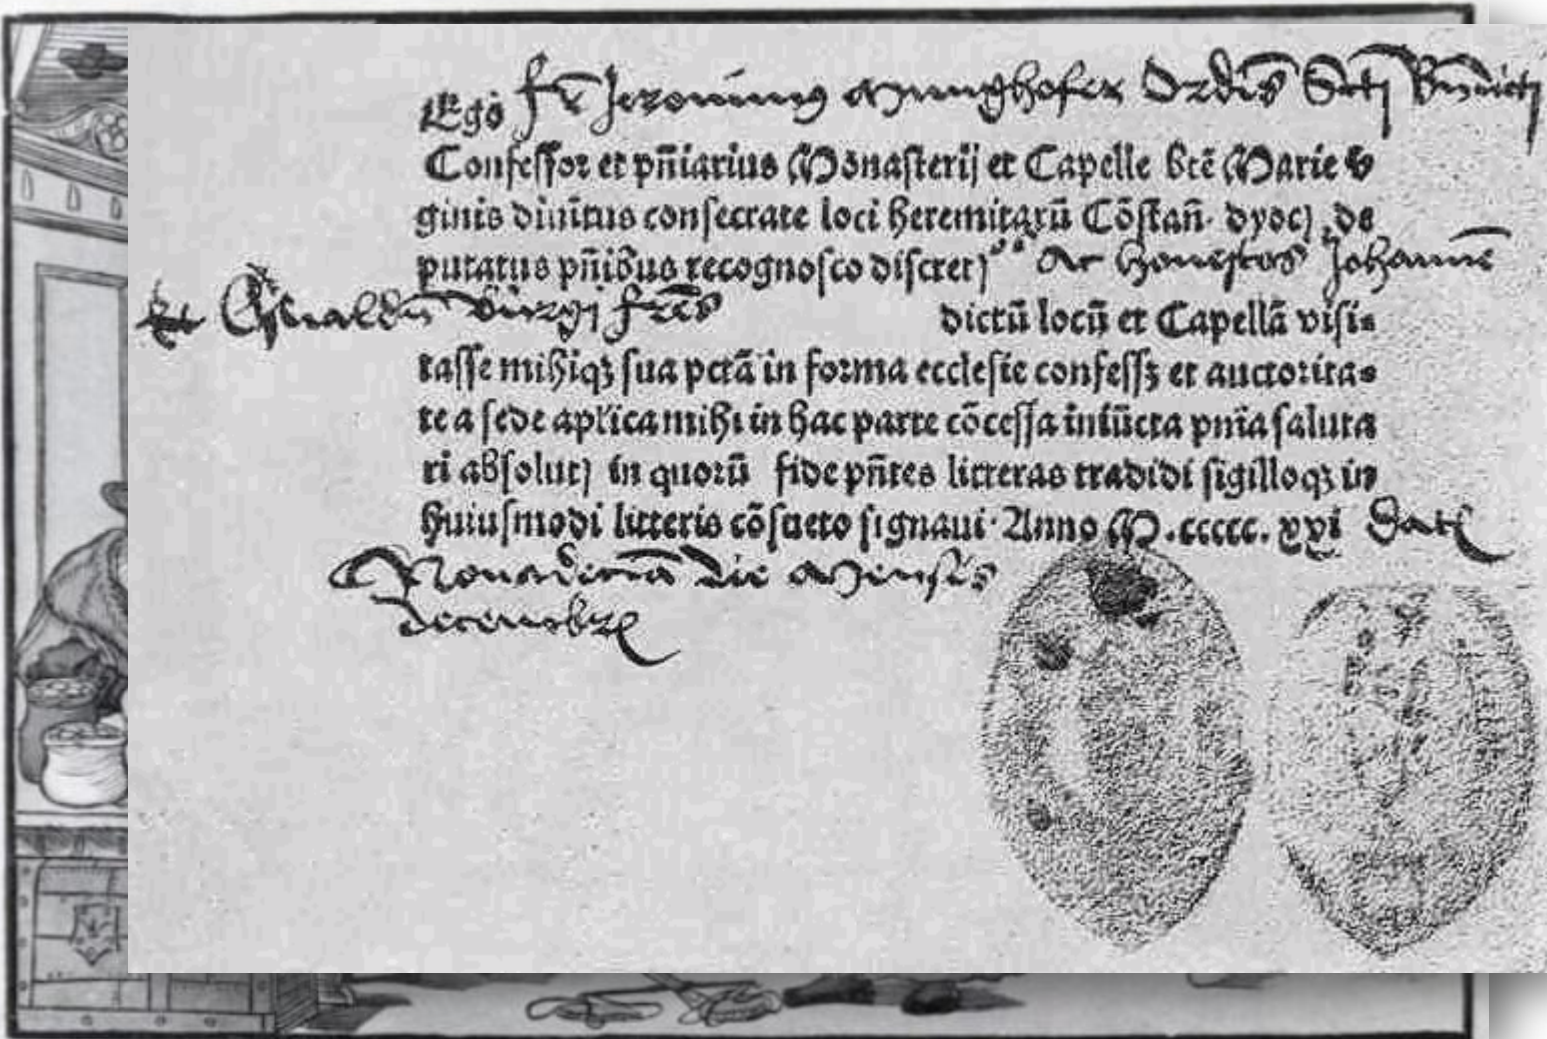 Ego fr̄ Jeronimus Munghofer Ordīs Scti Bn̄dicti
Confessor et pn̄iarius Monasterij et Capelle btē Marie v
ginis diuītus consecrate loci heremitarū Cōstan̄. dyoc̄ ,de
putatus pn̄ibus recognosco discret) Ac honestos Johannē
Et Oswaldū bürgi fr̄es dictū locū et Capellā visi=
tasse mihiqꝫ sua pctā in forma ecclesie confessꝫ et auctorita=
te a sede apl̄ica mihi in hac parte cōcessa iniūcta pnīa saluta
ri absolut) in quorū fide pn̄tes litteras tradidi sigilloqꝫ in
huiusmodi litteris cōsueto signaui. Anno M.ccccc.xxi Dat
Nonadecima die Mensis
decembrꝭ